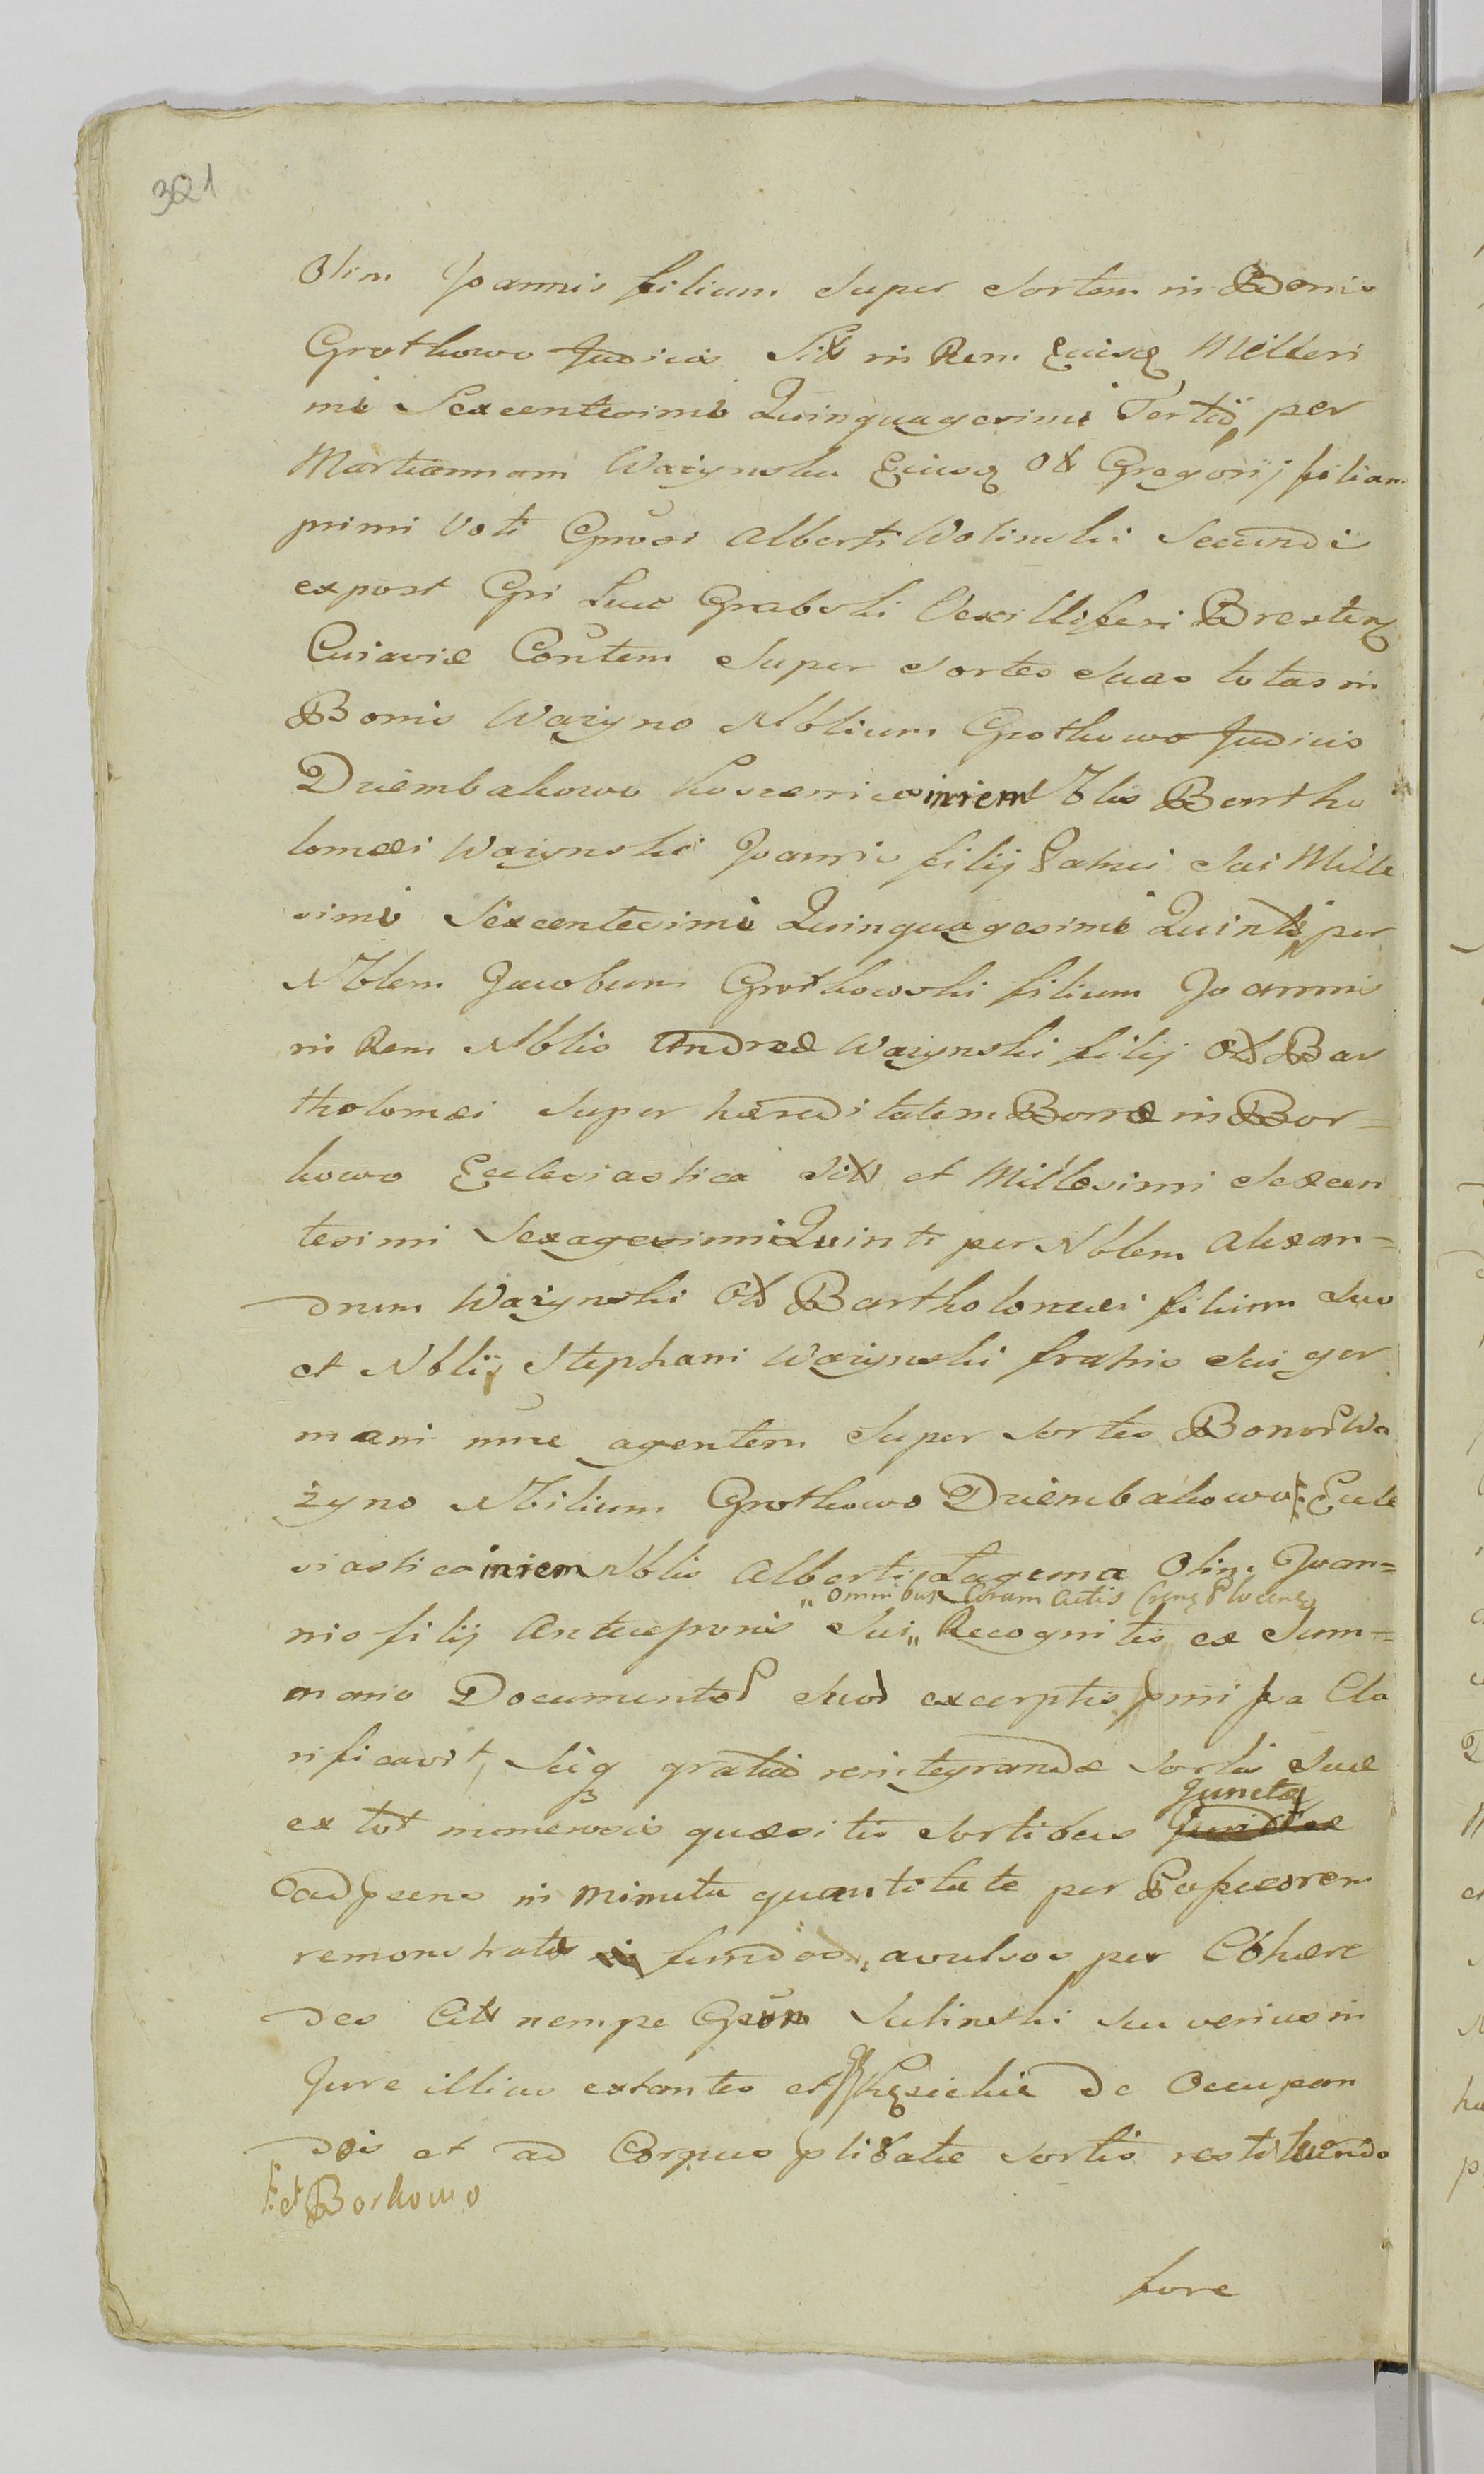 321
Olim Joannis filium super sortem in Bonis
Grothowo Judicis Sitt in Rem Ejusq Millesi
mi Sexcentesimi Quinquagesimi Tertij per
Martiannam Wazynska Ejusq Ol Gregorij filiam
primi Voti Gnrosi Alberti Wolinski Secundi
expost Gsi Luce Grabski Vexilliferi Bresten
Cuiaviæ Contem super sortes suas totas in
Bonis Wazyno Nobilium Grothowo Judicis
Dziembakowo Koscenica in rem Nblis Bartho
lomæi Wazynski Joannis filij Patrui sui Mille
simi Sexcentesimi Quinquagesimi Quinti per
Nblem Jacobum Grothowski filium Joannis
in Rem Nblis Andreæ Wazynski filij Olt Bar
tholomæi super hæreditatem Bonæ in Bor=
kowo Ecclesiastica Sitt et Millesimi Sexcen
tesimi Sexagesimi Quinti per Nblem Alexan=
drum Wazynski Olt Bartholomæi filium suo
et Nblis Stephani Wazynski fratris sui ger
mani nnie agentem super sortes Bonor Wa
żyno Nbilium Grothowo Dziembakowo :/: Eccle
siastica in rem Nblis Alberti Lagema Olim Joan=
" omnibus Coram Actis Crens Plocens
nis filij Anteceponis sui " Recognitis ex Sum=
mario Documentor suor excerptis pmissa Cla
rificavit, siq gratia reintegrandæ sortis suæ
Junctæ
ex tot numerosis quæsitis sortibus
adpsens in minuta quantitate per Possessorem
remonstratæ fundos " avulsos per Cohære
des Citt nempe Gsum Sulinski seu verius in
Jure illius extantes et de Occupan
dos et ad Corpus plibatæ sortis restituendo
:/: et Borkowo
fore